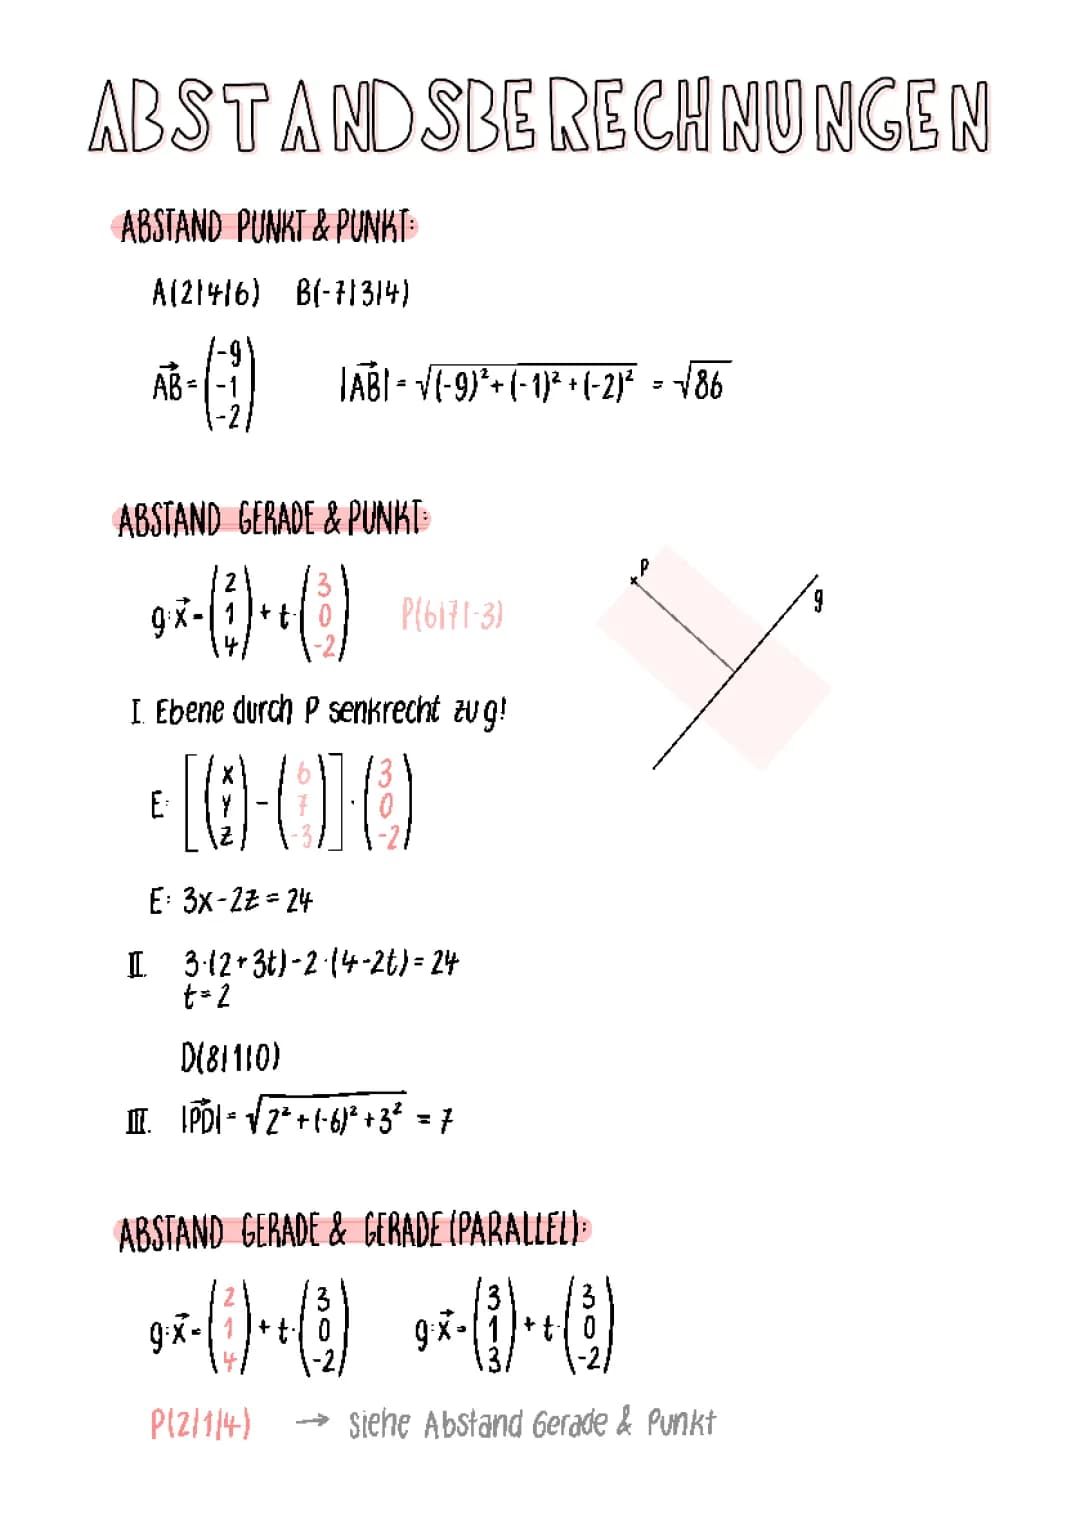 ABSTANDSBERECHNUNGEN
ABSTAND PUNKT & PUNKT:
A(2|4|6) B(-7|3|4)
AB = (-9 -1 -2) |AB| = √(-9)²+(-1)²+(-2)² = √86
ABSTAND GERADE & PUNKT:
g:x = (2 1 4) + t·(3 0 -2) P(6|7|-3)
P
g
I. Ebene durch P senkrecht zu g!
E: [(x y z) - (6 7 -3)] · (3 0 -2)
E: 3x-2z = 24
II. 3·(2+3t)-2·(4-2t) = 24
t=2
D(8|1|0)
III. |PD| = √2²+(-6)²+3² = 7
ABSTAND GERADE & GERADE (PARALLEL):
g:x = (2 1 4) + t·(3 0 -2) g:x = (3 1 3) + t·(3 0 -2)
P(2|1|4) → siehe Abstand Gerade & Punkt